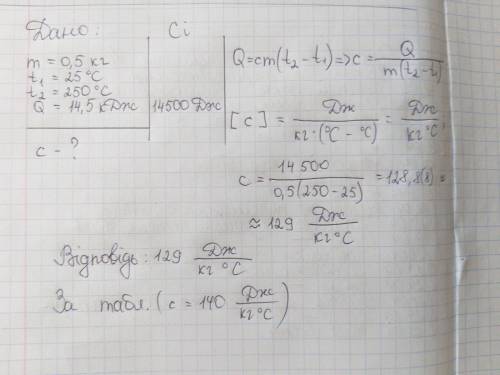 Дано:
Сі
m = 0,5 кг
t₁ = 25 °C
t₂ = 250 °C
Q = 14,5 кДж
14500 Дж
c - ?
Q = cm(t₂ - t₁) => c = Q / m(t₂ - t₁)
[c] = Дж / кг·(°C - °C) = Дж / кг°C
c = 14 500 / 0,5(250 - 25) = 128,8(8) ≈
≈ 129 Дж / кг°C
Відповідь: 129 Дж / кг °C
За табл. (c = 140 Дж / кг°C)